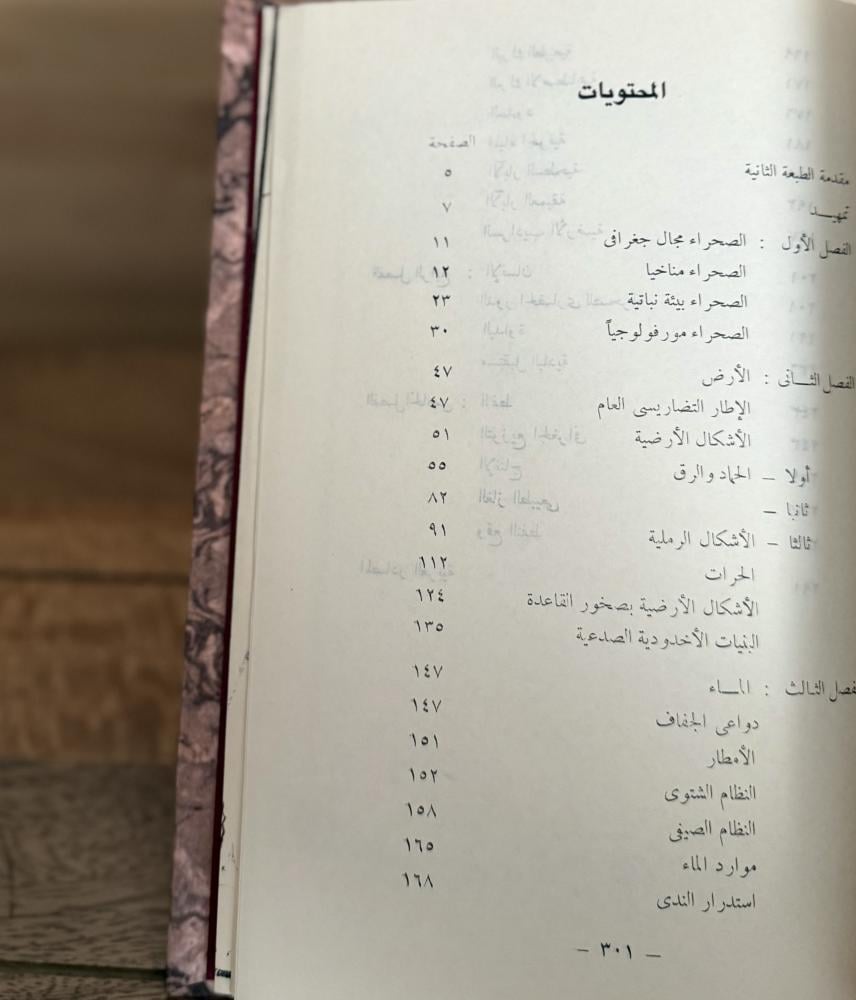 المحتويات
الصفحة
مقدمة الطبعة الثانية ٥
تمهيـــد ٧
الفصل الأول : الصحراء مجال جغرافى ١١
الصحراء مناخيا ١٢
الصحراء بيئة نباتية ٢٣
الصحراء مورفولوجياً ٣٠
الفصل الثـــانى : الأرض ٤٧
الإطار التضاريسى العام ٤٧
الأشكال الأرضية ٥١
أولا – الحماد والرق ٥٥
ثانيا – ٨٢
ثالثا – الأشكال الرملية ٩١
الحرات ١١٢
الأشكال الأرضية بصخور القاعدة ١٢٤
البنيات الأخدودية الصدعية ١٣٥
فصل الثالث : المـــاء ١٤٧
دواعى الجفاف ١٤٧
الأمطار ١٥١
النظام الشتوى ١٥٢
النظام الصيفى ١٥٨
موارد الماء ١٦٥
استدرار الندى ١٦٨
– ٣٠١ –